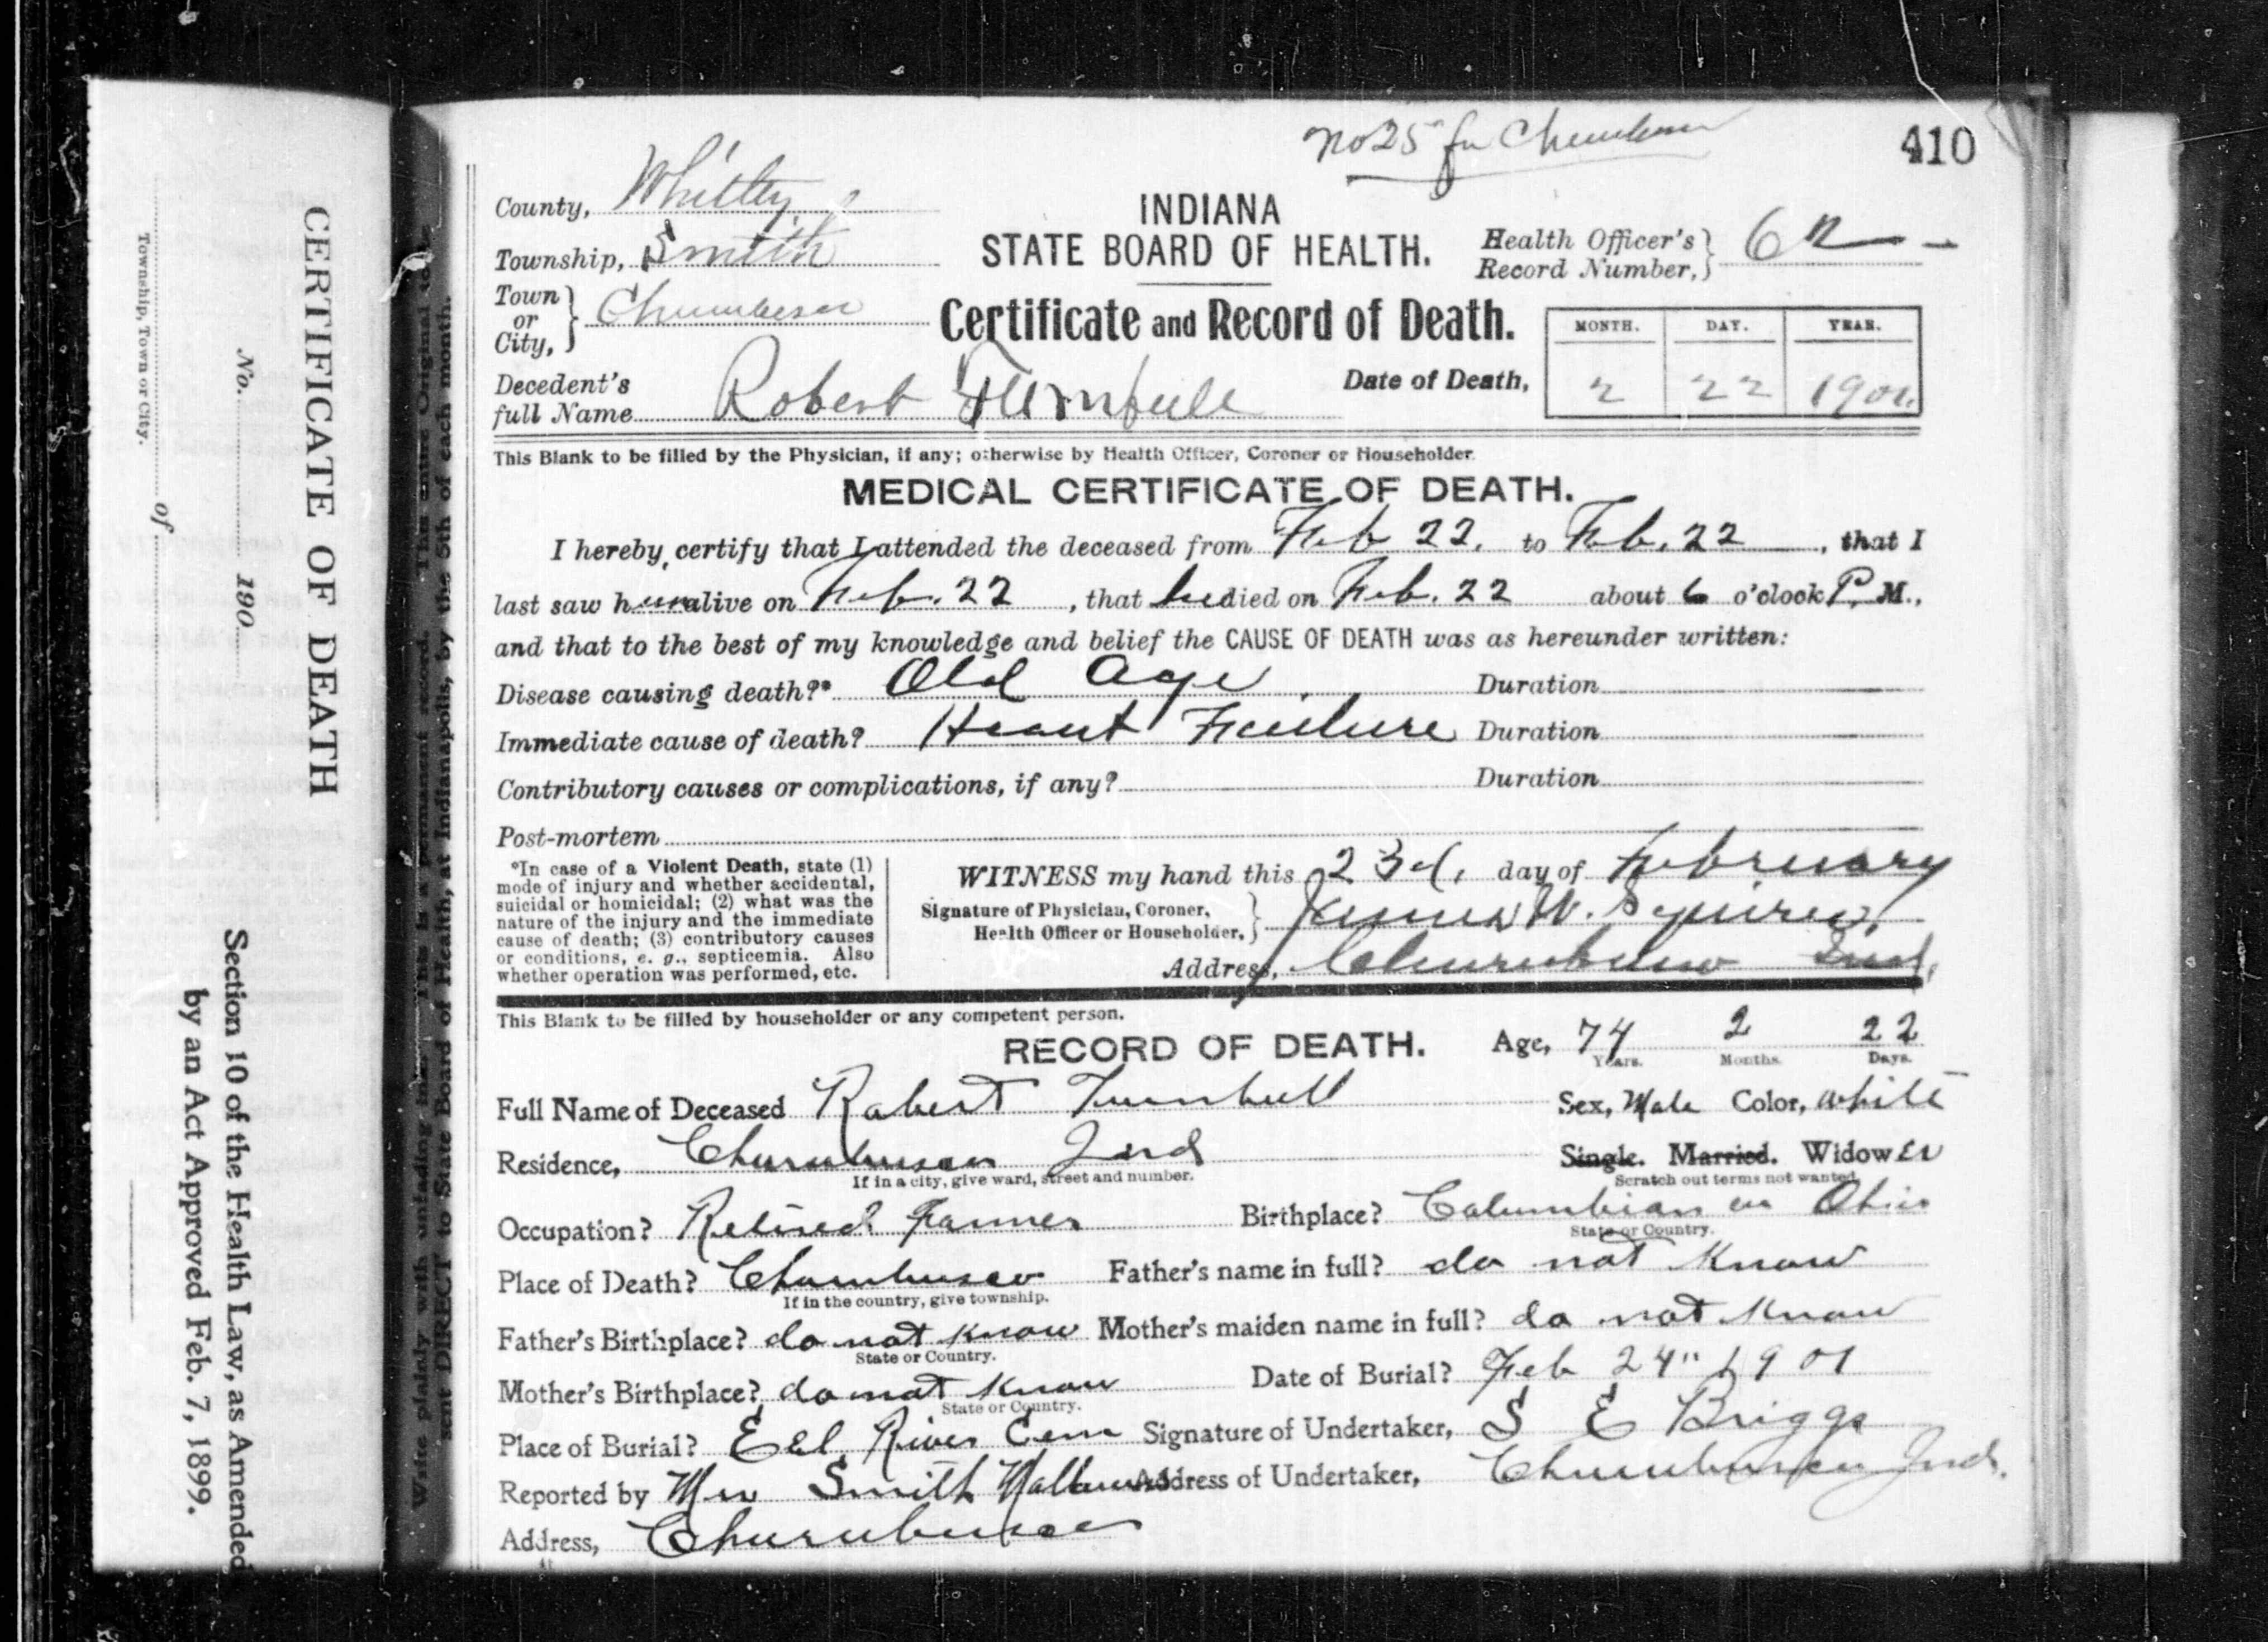 410
No 25 for Churubusco
County, Whitley
INDIANA
STATE BOARD OF HEALTH.
Township, Smith
Health Officer's Record Number,
Town or City, Churubusco
Certificate and Record of Death.
MONTH. DAY. YEAR.
Date of Death, 2 22 1901.
Decedent's full Name Robert Turnbull
This Blank to be filled by the Physician, if any; otherwise by Health Officer, Coroner or Householder.
MEDICAL CERTIFICATE OF DEATH.
I hereby certify that I attended the deceased from Feb 22. to Feb. 22, that I
last saw him alive on Feb. 22, that he died on Feb. 22 about 6 o'clock P. M.,
and that to the best of my knowledge and belief the CAUSE OF DEATH was as hereunder written:
Disease causing death?* Old Age. Duration
Immediate cause of death? Heart Failure Duration
Contributory causes or complications, if any? Duration
Post-mortem
*In case of a Violent Death, state (1)
mode of injury and whether accidental,
suicidal or homicidal; (2) what was the
nature of the injury and the immediate
cause of death; (3) contributory causes
or conditions, e. g., septicemia. Also
whether operation was performed, etc.
WITNESS my hand this 23d. day of February
Signature of Physician, Coroner,
Health Officer or Householder, James W. Squires,
Address, Churubusco Ind.
This Blank to be filled by householder or any competent person.
RECORD OF DEATH. Age, 74 2 22
Years. Months. Days.
Full Name of Deceased Robert Turnbull Sex, Male Color, White
Residence, Churubusco Ind Single. Married. Widower
If in a city, give ward, street and number. Scratch out terms not wanted.
Occupation? Retired Farmer Birthplace? Columbiana Ohio
State or Country.
Place of Death? Churubusco Father's name in full? do not know
If in the country, give township.
Father's Birthplace? do not know Mother's maiden name in full? do not know
State or Country.
Mother's Birthplace? do not know Date of Burial? Feb 24" 1901
State or Country.
Place of Burial? Eel River Cem Signature of Undertaker, S E Briggs
Reported by Mrs Smith Address of Undertaker, Churubusco Ind.
Address, Churubusco
Write plainly with unfading ink. This is a permanent record. This entire Original to be
sent DIRECT to State Board of Health, at Indianapolis, by the 5th of each month.
CERTIFICATE OF DEATH
No. 190
of
Township, Town or City.
Section 10 of the Health Law, as Amended
by an Act Approved Feb. 7, 1899.